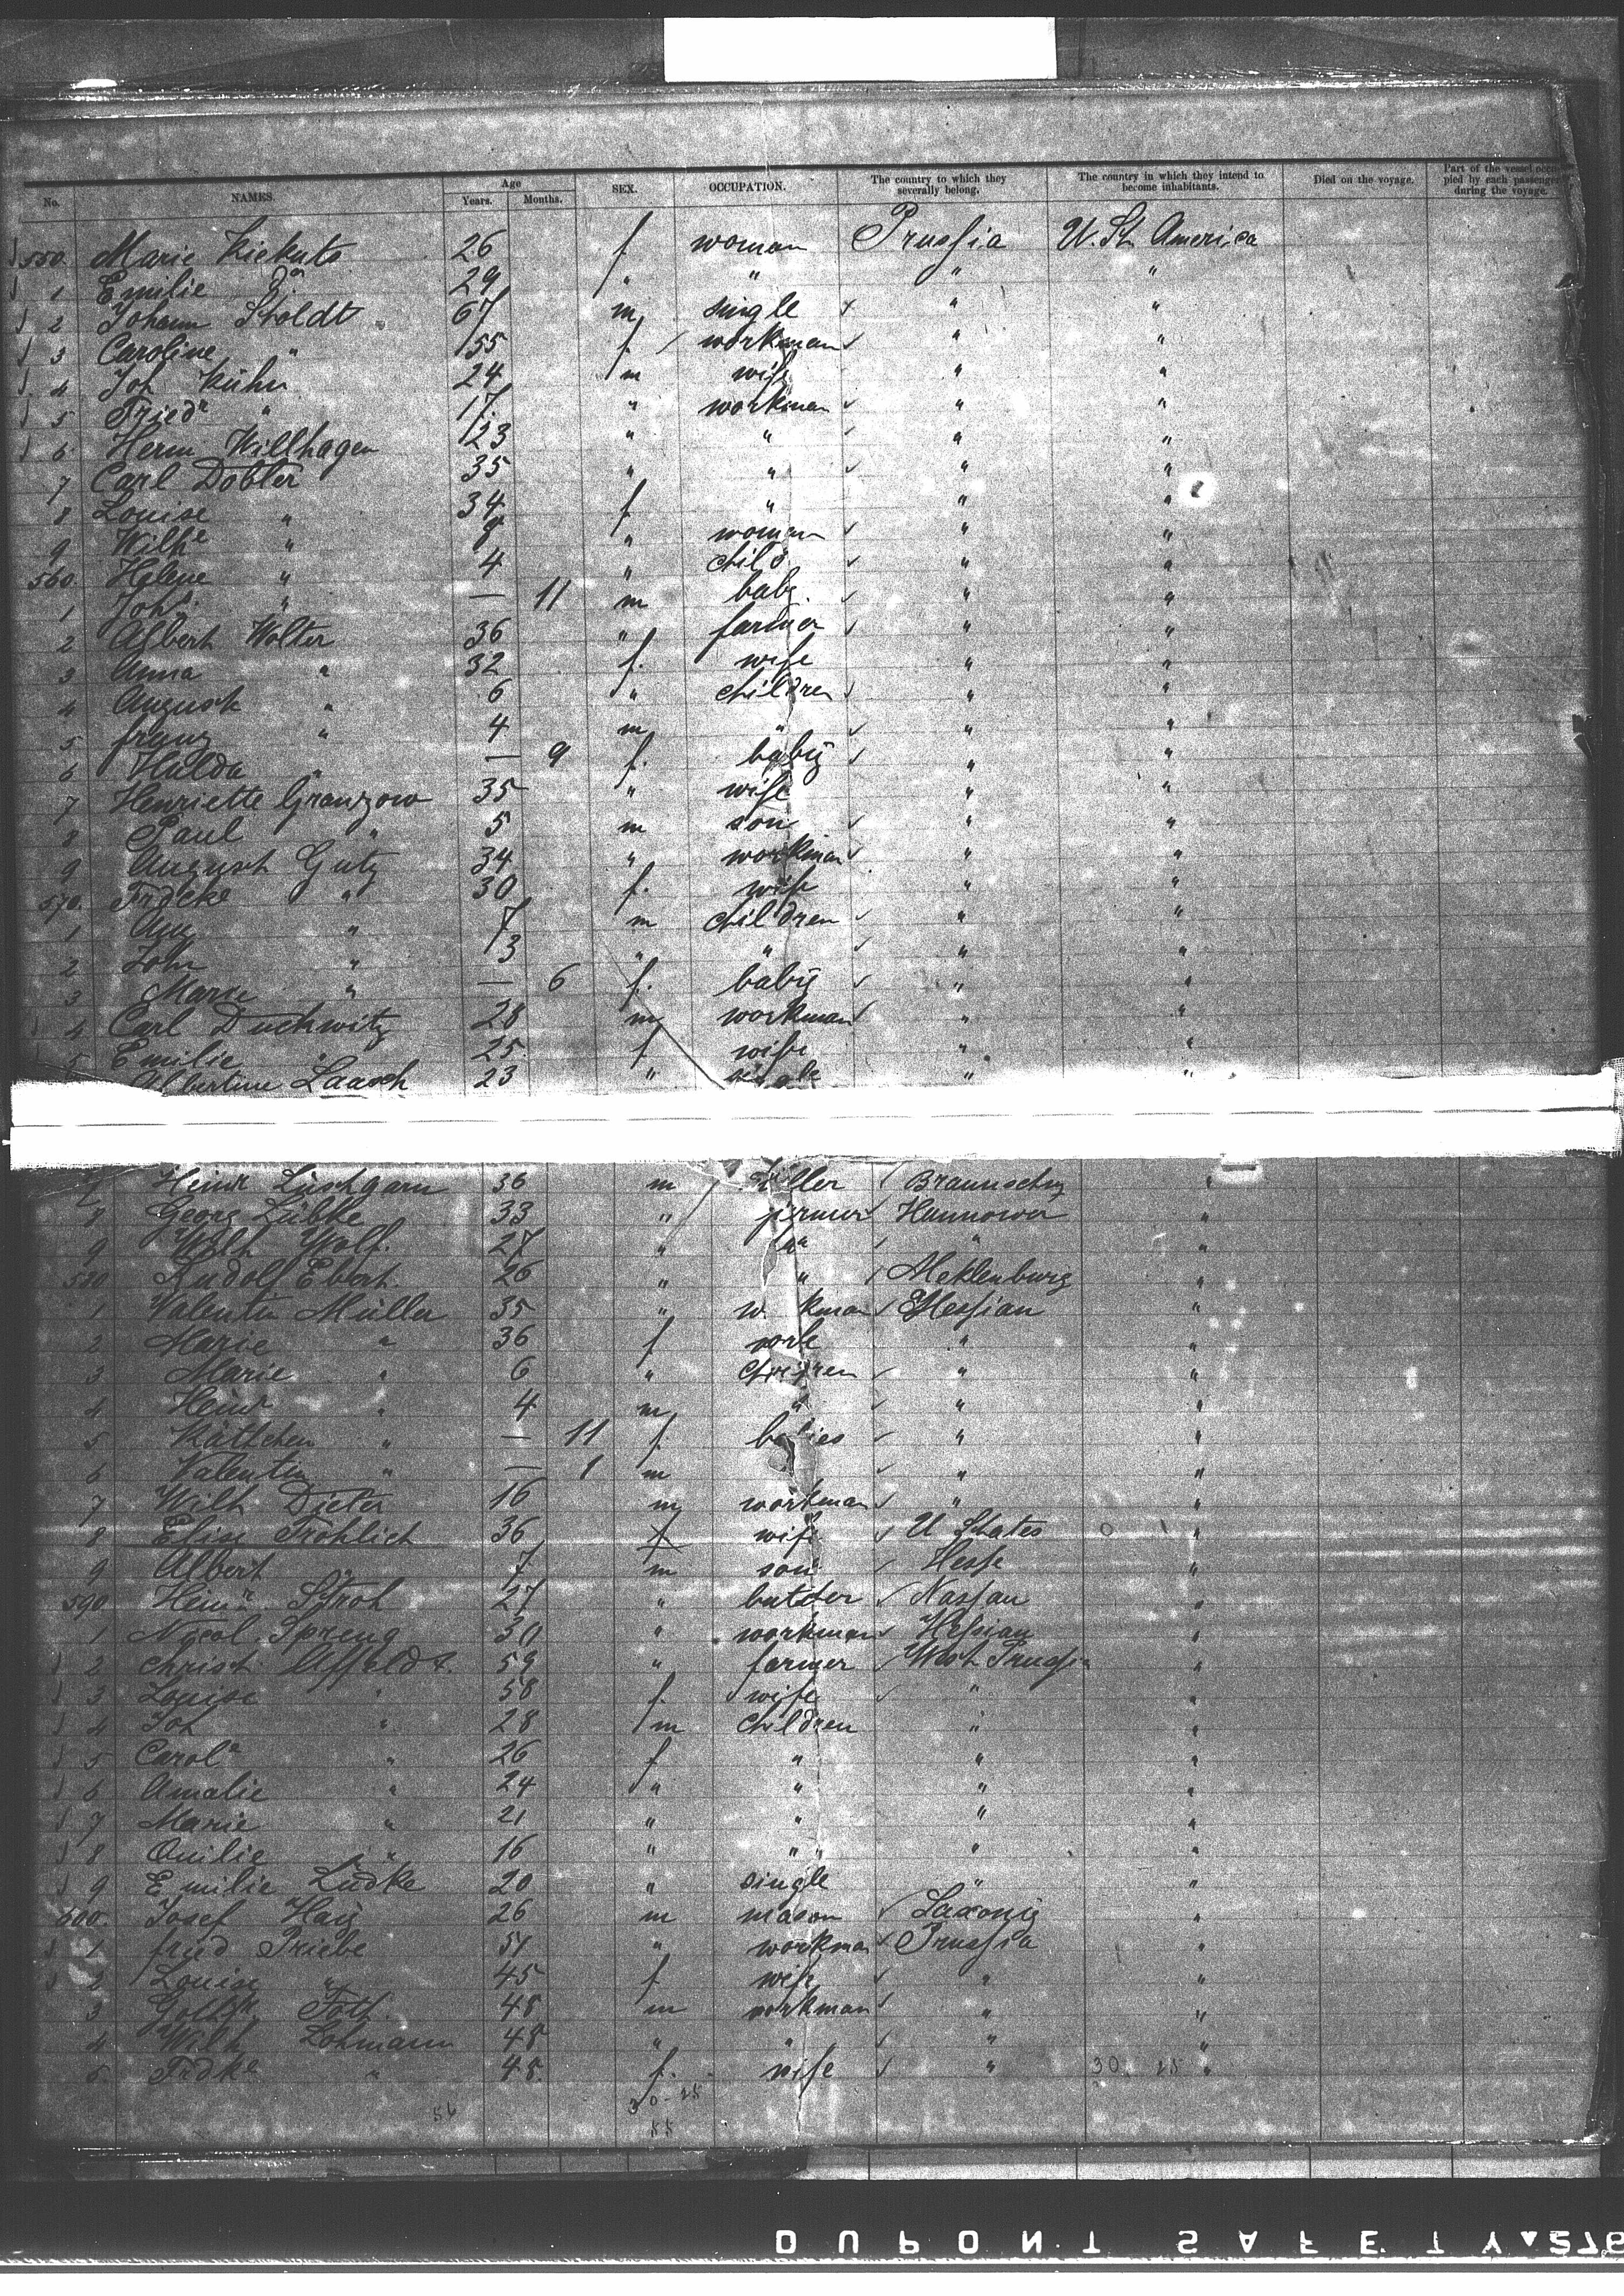 No. NAMES. Age Years. Months. SEX. OCCUPATION. The country to which they severally belong. The country in which they intend to become inhabitants. Died on the voyage. Part of the vessel occupied by each passenger during the voyage.
550. Marie Kickuts 26 f. woman Prussia U. St. America
1 Emilie do 29 " " " "
2 Johann Stoldt 67 m single " "
3 Caroline " 55 f. workman " "
4 Joh Kühn 24 m wife " "
5 Friedr " 17 " workman " "
6 Herm Willhagen 23 " " " "
7 Carl Dobler 35 " " " "
8 Louise " 34 f " " "
9 Wilhe " 8 " woman " "
560. Helene " 4 " child " "
1 Johs. " — 11 m baby. " "
2 Albert Wolter 36 " farmer " "
3 Anna " 32 f. wife " "
4 August " 6 " children " "
5 franz " 4 m " " "
6 Hulda " — 9 f. baby " "
7 Henriette Granzow 35 " wife " "
8 Paul " 5 m son " "
9 August Gutz 34 " workman " "
570. Frdcke " 30 f. wife " "
1 " 7 m children " "
2 John " 3 " " " "
3 Marie " — 6 f. baby " "
4 Carl Duchwitz 28 m workman " "
5 Emilie " 25 f wife " "
Albertine Laasch 23 " single " "
7 Heinr Lüschgarn 36 m Braunschw "
8 Georg Lübke 33 " Hannover "
9 Wilh Wolf. 27 " " " "
580 Rudolf Ebert. 26 " " Meklenburg "
1 Valentin Müller 35 " w kman Hessian "
2 Marie " 36 f wife " "
3 Marie " 6 " children " "
4 Heinr " 4 m " " "
5 Käthchen " — 11 f. babies " "
6 Valentin " — 1 m " "
7 Wilh Dieter 16 m workman " "
8 Elise Fröhlich 36 f wife U States "
9 Albert " 7 m son Hesse "
590 Heinr Stroh 27 " butcher Nassau "
1 Nicol Spreng 30 " workman Hessian "
2 Christ Affeldt. 59 " farmer West Prussia "
3 Louise " 58 f. wife " "
4 Joh " 28 m children " "
5 Carola " 26 f " " "
6 Amalie " 24 " " " "
7 Marie " 21 " " " "
8 " 16 " " " "
9 Emilie Lüdke 20 " single " "
600. Josef Haig 26 m mason Saxony "
1 fried Priebe 51 " workman Prussia "
2 Louise " 45 f wife " "
3 Foth. 48 m workman " "
4 Wilh Lohmann 48 " " " "
5. Frdke " 48. f. wife " 30 25 "
56 30-25
55
DUPONT SAFETY 276